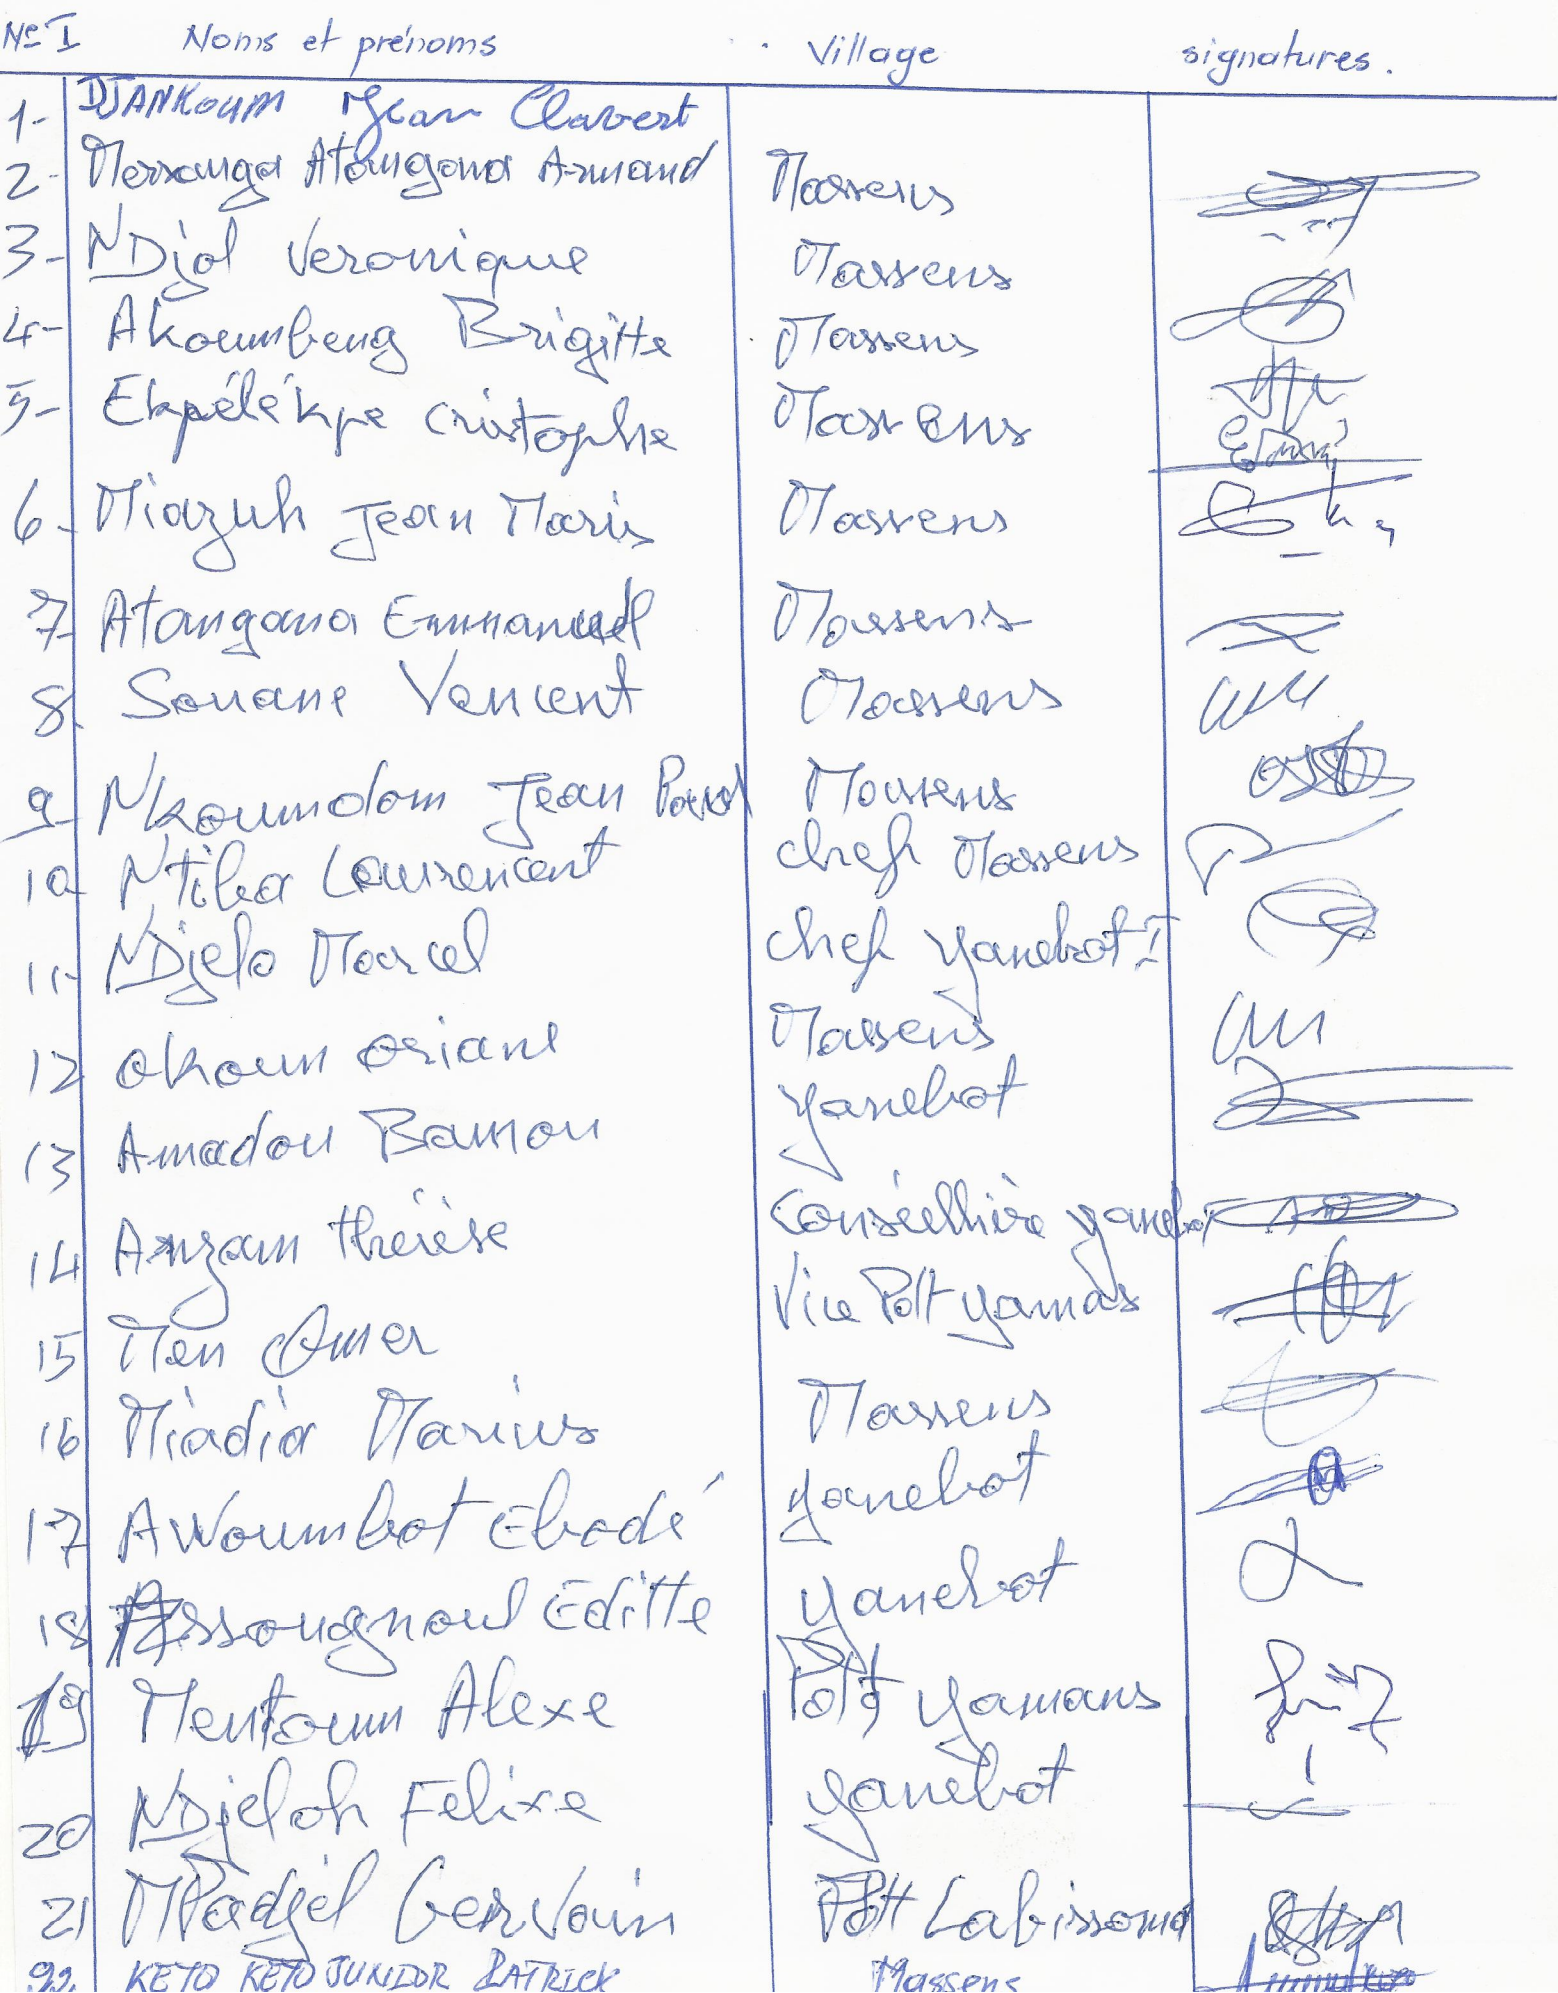 N° I Noms et prénoms Village signatures.
1- DJANKOUM Jean Clavert
2- Messanga Atangana Armand Massens
3- NDjol Veronique Massens
4- Akoumbeng Brigitte Massens
5- Ekpélékpe Cristophe Massens
6- Miazuh Jean Maris Massens
7- Atangana Emmanuel Massens
8. Souane Vencent Massens
9- Nkoumdom Jean Massens
10- Ntiba Laurencent chef Massens
11- NDjelo Marcel chef yanebot I
12 Okoun Oriane Massens
13 Amadou Bamou yanebot
14 Anzam thérèse Conseillière yanebot
15 Men Omer Vice Pdt yamas
16 Miadia Marius Massens
17 AWoumbot Ebodé yanebot
18 Assougnoul Editte yanebot
19 Mentoum Alexe Pdt yamans
20 NDjeloh Felixe yanebot
21 MPadjel Gervain Pdt Labissoma
22. KETO KETO JUNIOR PATRICK Massens